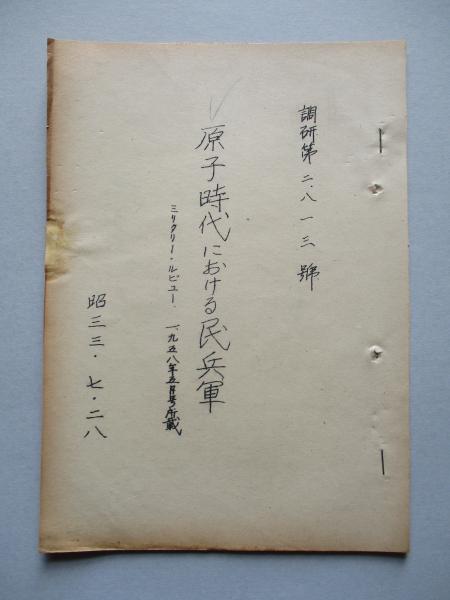 調研第二.八一三號
原子時代における民兵軍
ミリタリー・ルビュー.一九五八年五月号所載
昭三三・七・二八